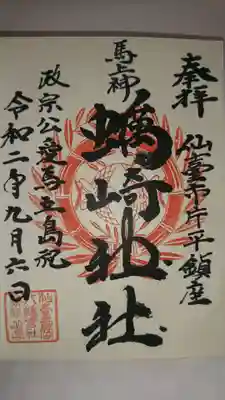 奉拝
仙臺市片平鎮座
馬上神
蠣崎神社
政宗公愛馬五島祀
令和二年九月六日